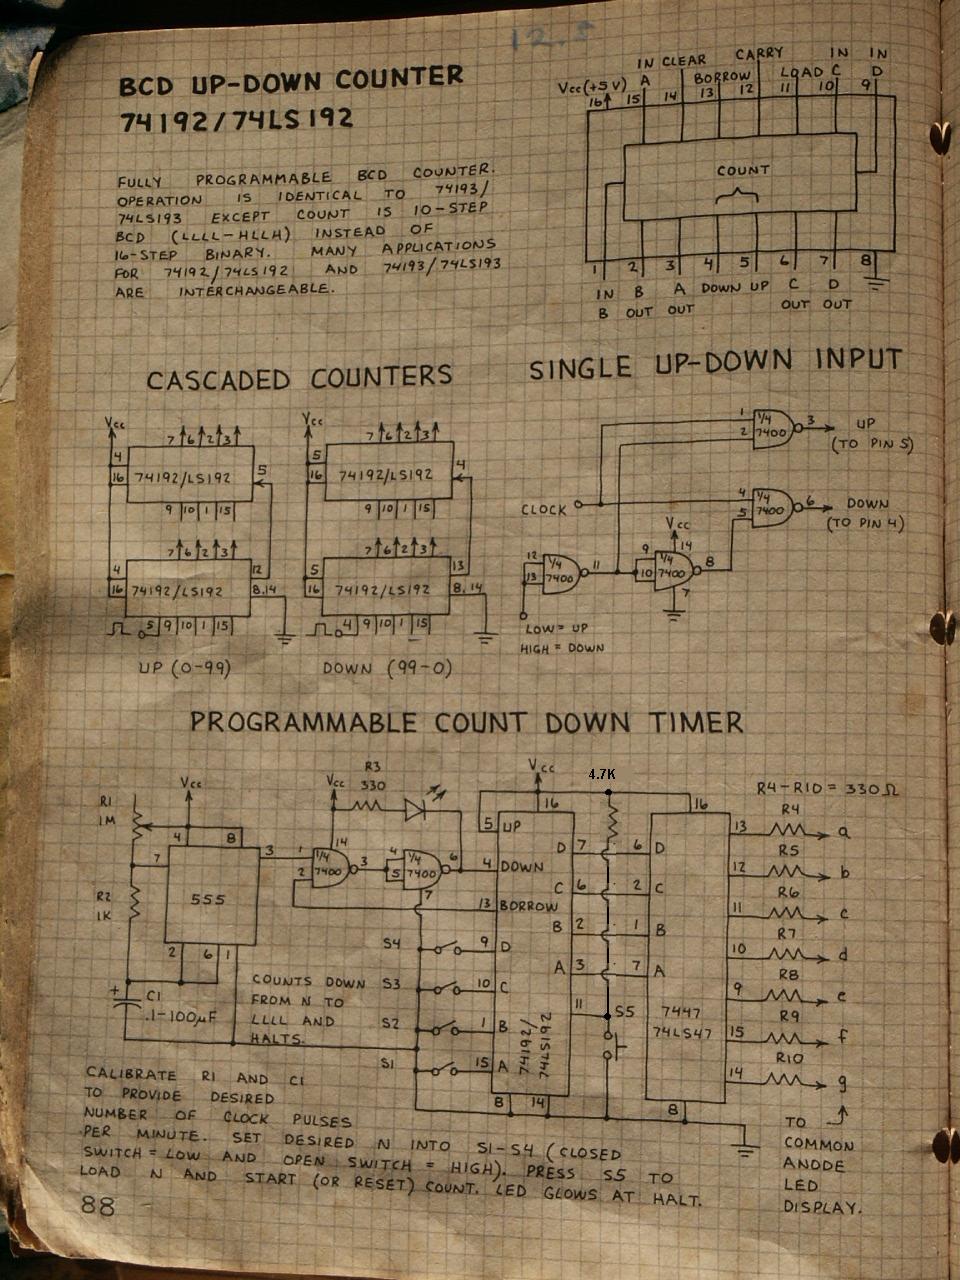 12.5
BCD UP-DOWN COUNTER
74192/74LS192
FULLY PROGRAMMABLE BCD COUNTER.
OPERATION IS IDENTICAL TO 74193/
74LS193 EXCEPT COUNT IS 10-STEP
BCD (LLLL-HLLH) INSTEAD OF
16-STEP BINARY. MANY APPLICATIONS
FOR 74192/74LS192 AND 74193/74LS193
ARE INTERCHANGEABLE.
IN CLEAR CARRY IN IN
Vcc(+5V) A BORROW LOAD C D
16 15 14 13 12 11 10 9
COUNT
1 2 3 4 5 6 7 8
IN B A DOWN UP C D
B OUT OUT OUT OUT
CASCADED COUNTERS
Vcc 7 6 2 3
4
16 74192/LS192 5
9 10 1 15
7 6 2 3
4 12
16 74192/LS192 8,14
5 9 10 1 15
UP (0-99)
Vcc 7 6 2 3
5 4
16 74192/LS192
9 10 1 15
7 6 2 3
5 13
16 74192/LS192 8,14
4 9 10 1 15
DOWN (99-0)
SINGLE UP-DOWN INPUT
1 1/4 3 UP
2 7400 (TO PIN 5)
CLOCK 4 1/4 6 DOWN
5 7400 (TO PIN 4)
Vcc
12 1/4 11 9 1/4 14 8
13 7400 10 7400 7
LOW = UP
HIGH = DOWN
PROGRAMMABLE COUNT DOWN TIMER
R1
1M
Vcc
4 8
7 3
555
2 6 1
R2
1K
+ C1
.1-100µF
Vcc R3
330
14
1 1/4 3 4 1/4 6
2 7400 5 7400
7
Vcc
16
5 UP
4 DOWN
13 BORROW
S4 9 D
S3 10 C
S2 1 B
S1 15 A
74192/
74LS192
8 14
D 7
C 6
B 2
A 3
11
4.7K
S5
16
6 D
2 C
1 B
7 A
7447
74LS47
8
R4-R10 = 330Ω
13 R4 a
12 R5 b
11 R6 c
10 R7 d
9 R8 e
15 R9 f
14 R10 g
TO
COMMON
ANODE
LED
DISPLAY.
COUNTS DOWN
FROM N TO
LLLL AND
HALTS.
CALIBRATE R1 AND C1
TO PROVIDE DESIRED
NUMBER OF CLOCK PULSES
PER MINUTE. SET DESIRED N INTO S1-S4 (CLOSED
SWITCH = LOW AND OPEN SWITCH = HIGH). PRESS S5 TO
LOAD N AND START (OR RESET) COUNT. LED GLOWS AT HALT.
88